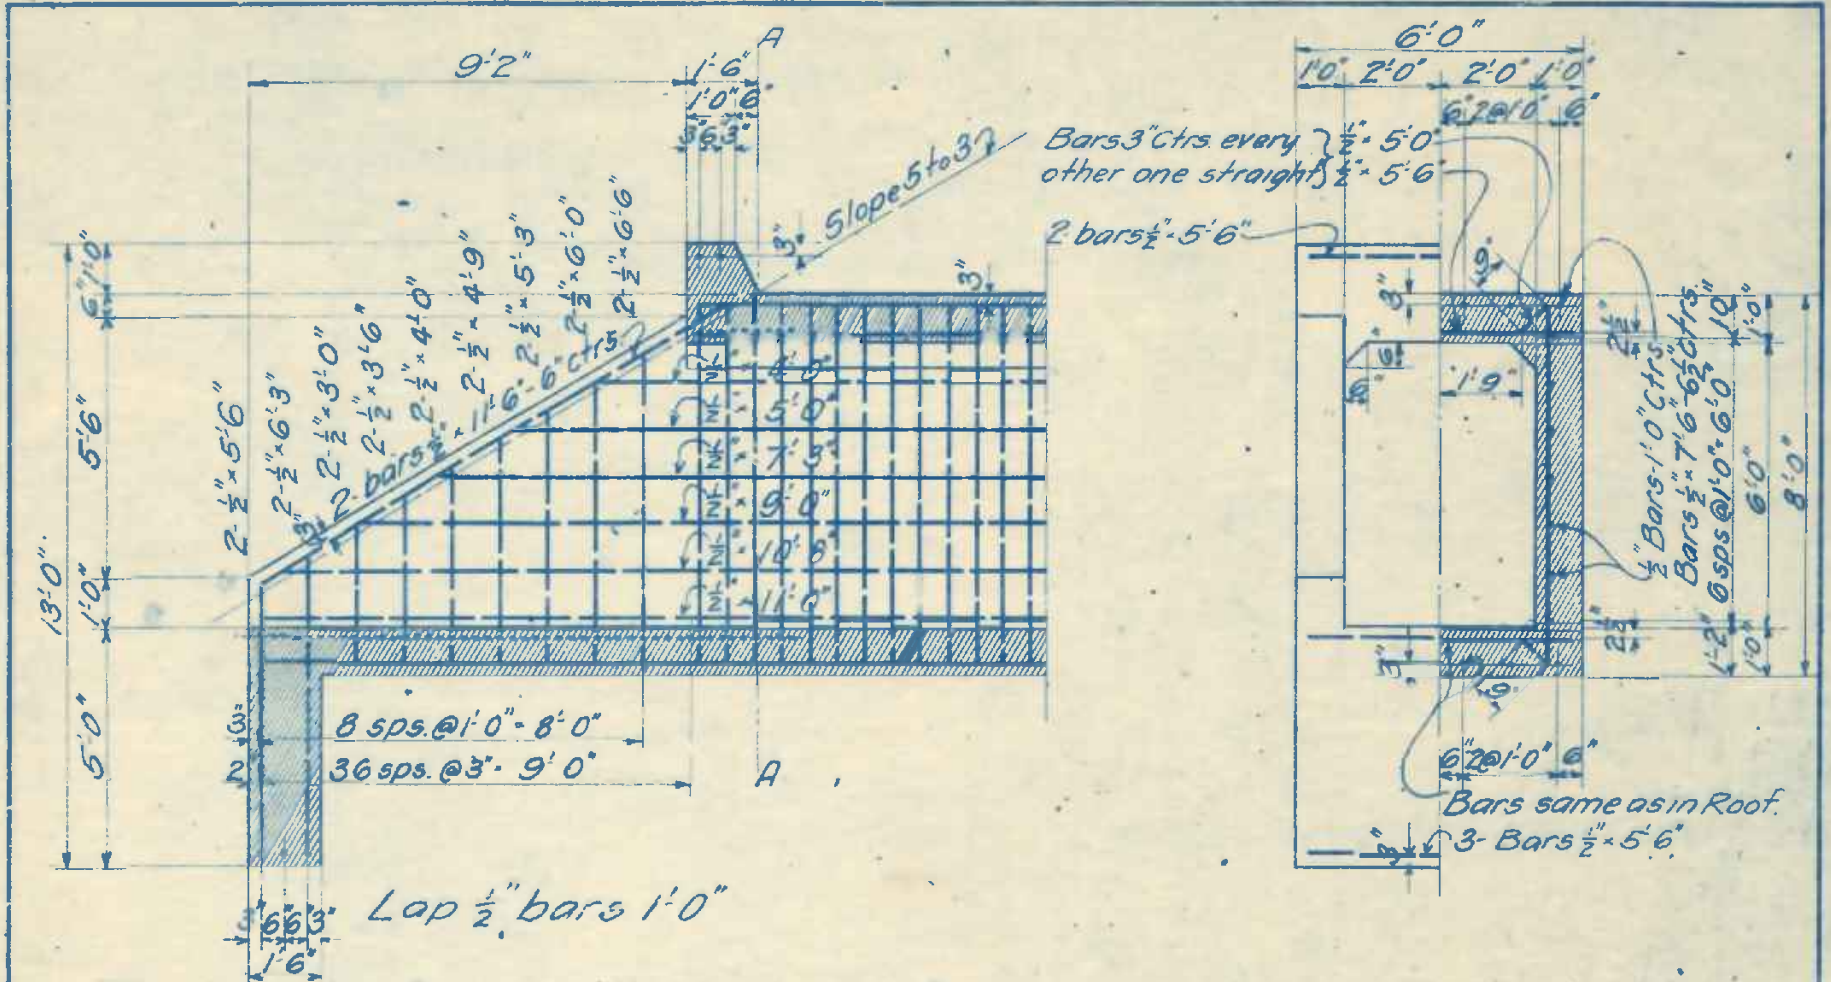 A
9'-2"
1'-6"
1'-0" 6"
3" 6" 3"
Slope 5 to 3
3"
3"
6" 1'-0"
5'-6"
13'-0"
1'-0"
5'-0"
2-½"×5'-6"
2-½"×6'-3"
2-½"×3'-0"
2-½"×3'-6"
2-½"×4'-0"
2-½"×4'-9"
2-½"×5'-3"
2-½"×6'-0"
2-½"×6'-6"
3"
2-bars ½"×11'-6"-6"ctrs.
½"× 5'-0"
½"× 7'-3"
½"× 9'-0"
½"× 10'-8"
½"× 11'-0"
3" 8 sps.@1'-0"= 8'-0"
2 36 sps.@3"= 9'-0"
A
3" 6" 6" 3"
1'-6"
Lap ½" bars 1'-0"
6'-0"
1'-0" 2'-0" 2'-0" 1'-0"
6" 2@1'-0" 6"
Bars 3"Ctrs. every } ½"× 5'-0"
other one straight } ½"× 5'-6"
2-bars ½"× 5'-6"
3"
6"
6"
1'-9"
2½"
½" Bars-1'-0" Ctrs.
Bars ½"×7'-6"-6½" Ctrs.
6 sps @1'-0"=6'-0" 10"
1'-0"
6'-0"
8'-0"
2½"
1'-2"
1'-0"
3"
6" 2@1'-0" 6"
Bars same as in Roof.
3"
3-Bars ½"×5'-6"